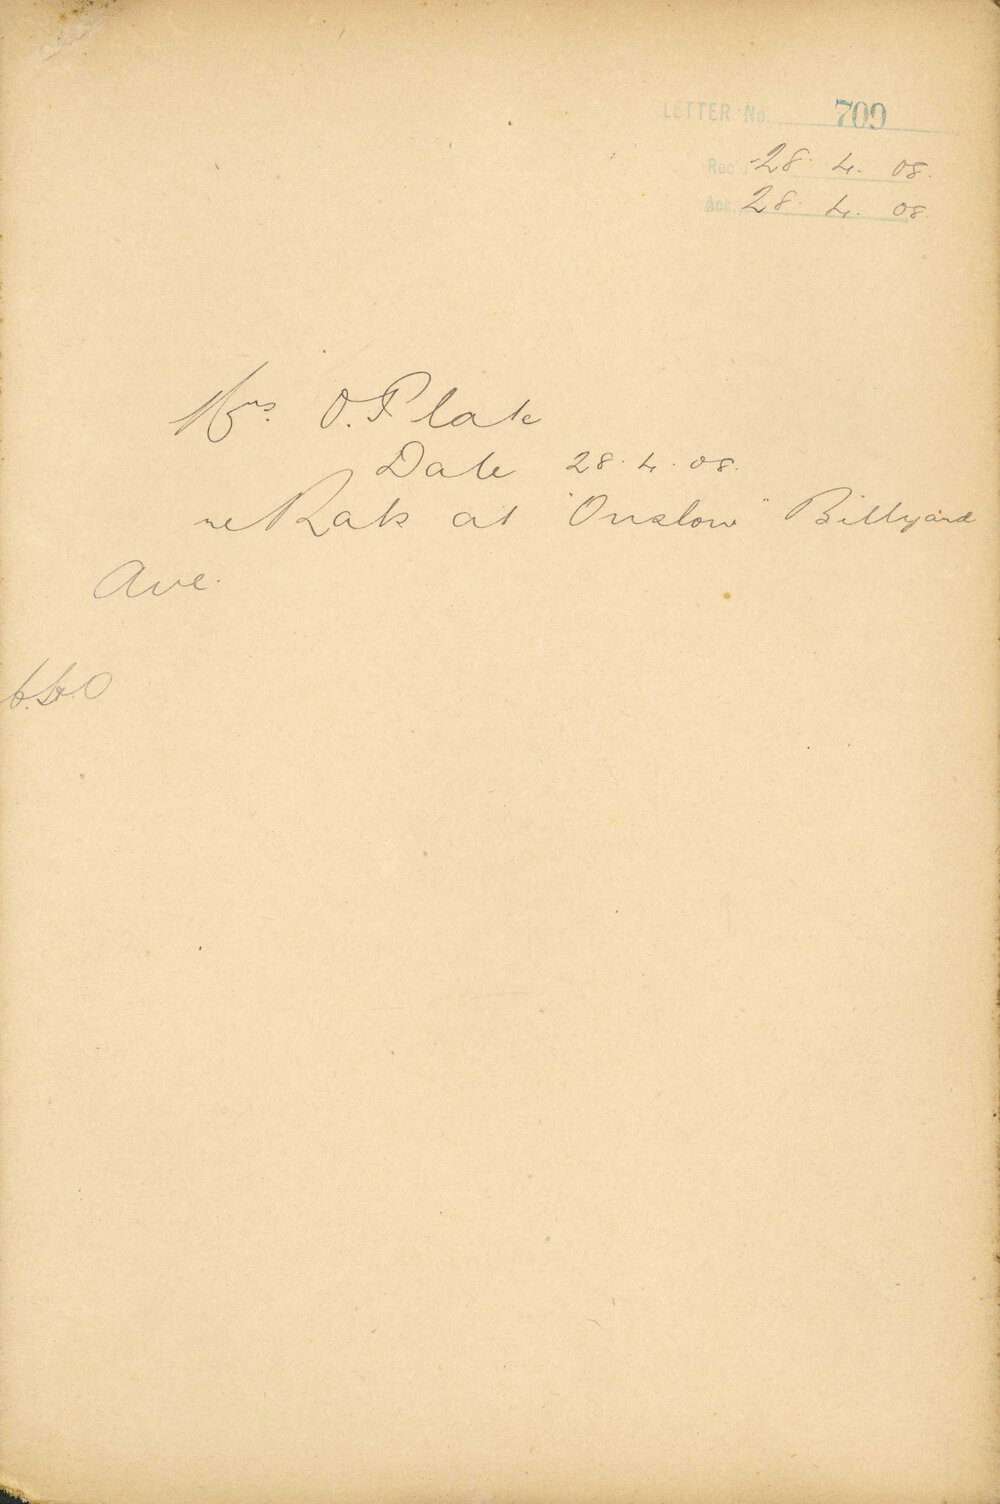 LETTER No. 709
Rec'd 28. 4. 08.
Ack. 28. 4. 08.
Mrs. O. Plate
Date 28. 4. 08.
re Rats at "Onslow" Billyard
Ave.